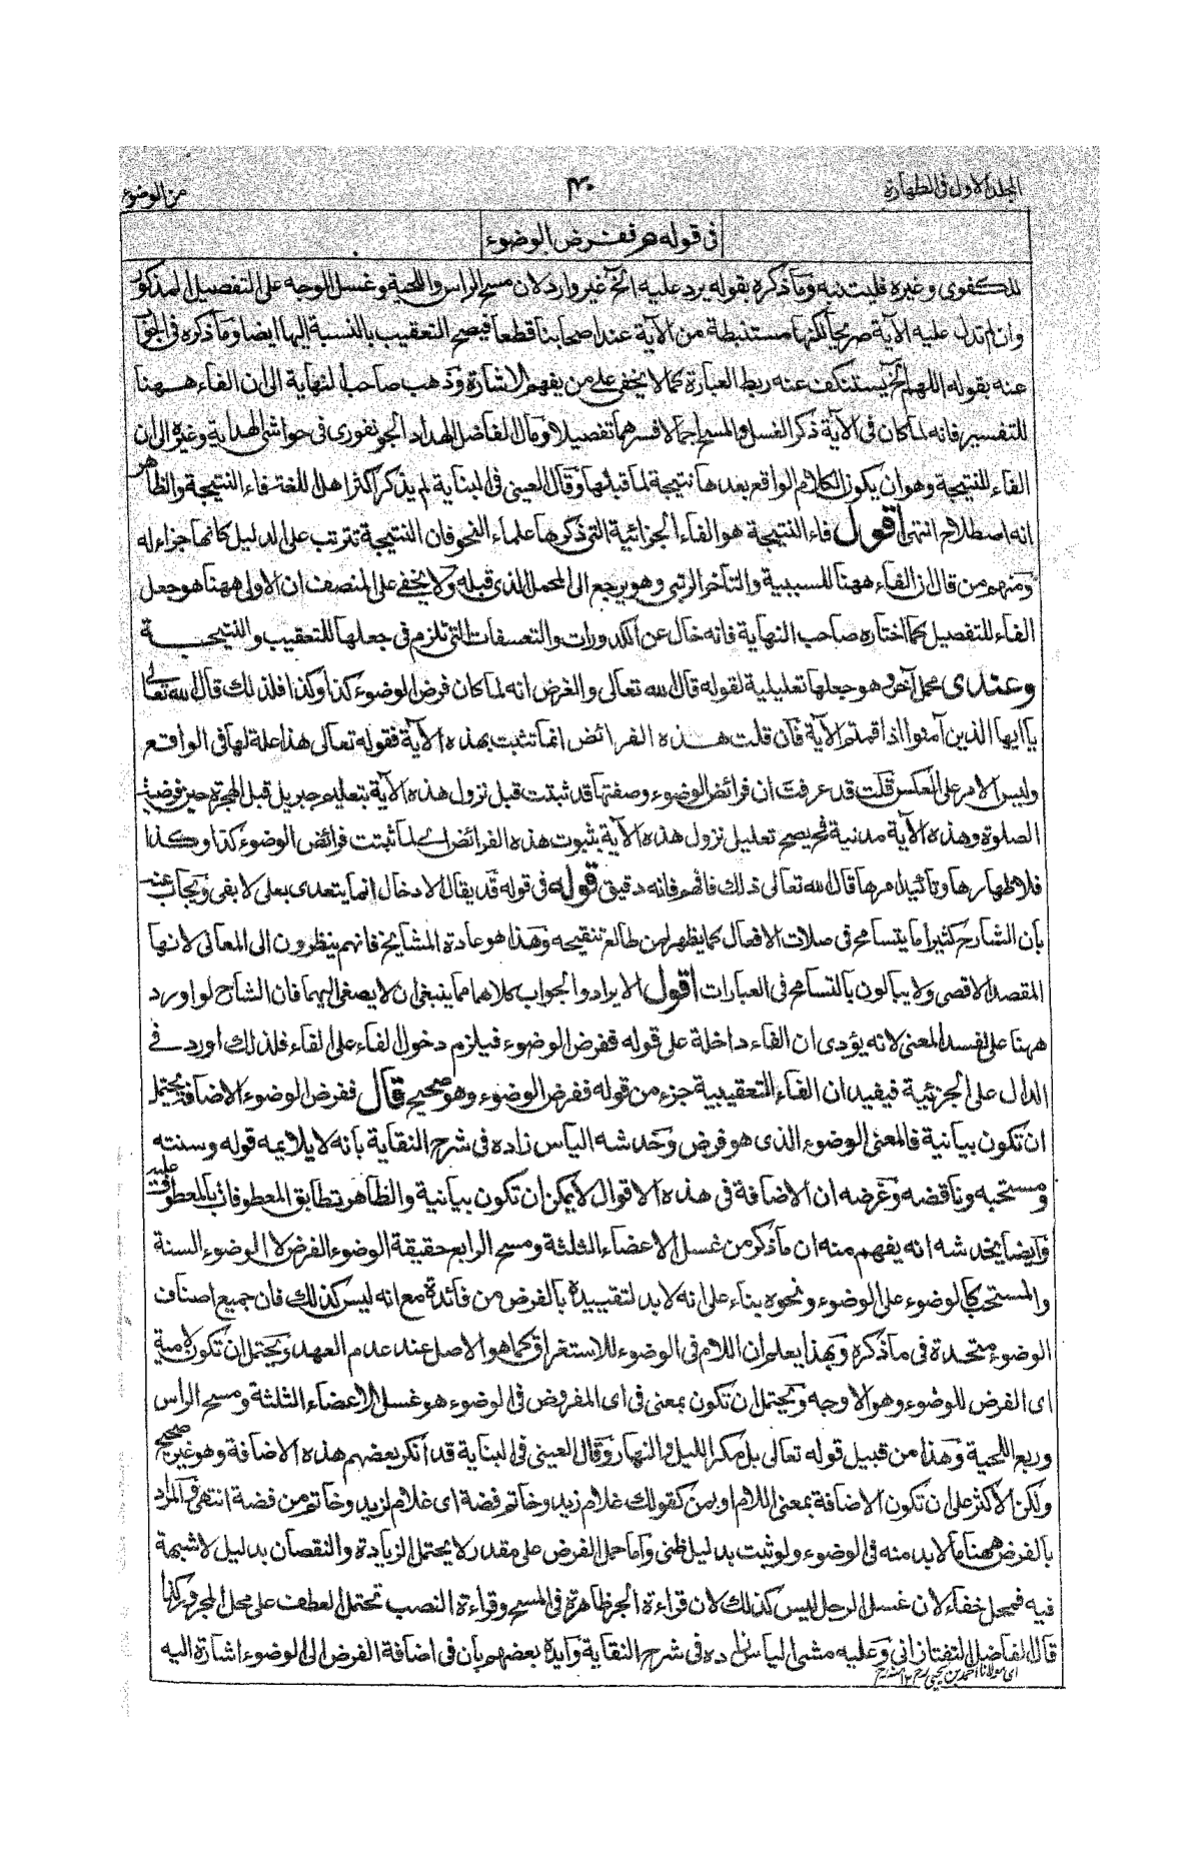 المجلد الاول في الطهارة
٤٠
من الوضوء
في قوله هر ففرض الوضوء
للكفوى وغيره فليتنبه وما ذكره بقوله يرد عليه الخ غير وارد لان مسح الراس واللحية وغسل الوجه على التفصيل المذكور
وان لم تدل عليه الآية صريحا لكنها مستنبطة من الآية عند اصحابنا قطعا فيصح التعقيب بالنسبة اليها ايضا وما ذكره في الجواب
عنه بقوله اللهم الخ يستنكف عنه ربط العبارة كما لا يخفى على من يفهم الاشارة وذهب صاحب النهاية الى ان الفاء ههنا
للتفسير فانه لما كان في الآية ذكر الغسل والمسح اجمالا فسرهما تفصيلا ومال الفاضل الهداد الجونفورى في حواشي الهداية وغيره الى ان
الفاء للنتيجة وهو ان يكون الكلام الواقع بعدها نتيجة لما قبلها وقال العيني في البناية لم يذكر اكثر اهل اللغة فاء النتيجة والظاهر
انه اصطلاح انتهى اقول فاء النتيجة هو الفاء الجزائية التي ذكرها علماء النحو فان النتيجة تترتب على الدليل كانها جزاء له
ومنهم من قال ان الفاء ههنا للسببية والتأخر الرتبي وهو يرجع الى المحمل الذي قبله ولا يخفى على المنصف ان الاولى ههنا هو جعل
الفاء للتفصيل كما اختاره صاحب النهاية فانه خال عن الكدورات والتعسفات التي تلزم في جعلها للتعقيب والنتيجة
وعندى محمل آخر وهو جعلها تعليلية لقوله قال الله تعالى والغرض انه لما كان فرض الوضوء كذا وكذا فلذلك قال الله تعالى
يا ايها الذين آمنوا اذا قمتم الآية فان قلت هذه الفرائض انما تثبت بهذه الآية فقوله تعالى هذا علة لها في الواقع
وليس الامر على العكس قلت قد عرفت ان فرائض الوضوء وصفتها قد ثبتت قبل نزول هذه الآية بتعليم جبريل قبل الهجرة حين فرضية
الصلوة وهذه الآية مدنية فحينئذ يصح تعليل نزول هذه الآية بثبوت هذه الفرائض اي لما ثبتت فرائض الوضوء كذا وكذا
فلاظهارها وتأكيد امرها قال الله تعالى ذلك فافهم فانه دقيق قوله في قوله قد يقال الادخال انما يتعدى بعلى لا بفي ويجاب عنه
بان الشارح كثيرا ما يتسامح في صلات الافعال كما يظهر لمن طالع تنقيحه وهذا هو عادة المشايخ فانهم ينظرون الى المعاني لانها
المقصد الاقصى ولا يبالون بالتسامح في العبارات اقول الايراد والجواب كلاهما مما ينبغي ان لا يصغى اليهما فان الشارح لو اورد
ههنا على لفسد المعنى لانه يؤدى ان الفاء داخلة على قوله ففرض الوضوء فيلزم دخول الفاء على الفاء فلذلك اورد في
الدال على الجزئية فيفيد ان الفاء التعقيبية جزء من قوله ففرض الوضوء وهو صحيح قال ففرض الوضوء الاضافة يحتمل
ان تكون بيانية فالمعنى الوضوء الذى هو فرض وخدشه الياس زاده في شرح النقاية بانه لا يلايمه قوله وسنته
ومستحبه وناقضه وغرضه ان الاضافة في هذه الاقوال لا يمكن ان تكون بيانية والظاهر تطابق المعطوفات بالمعطوف عليه
وايضا يخدشه انه يفهم منه ان ما ذكر من غسل الاعضاء الثلثة ومسح الرابع حقيقة الوضوء الفرض لا الوضوء السنة
والمستحب كالوضوء على الوضوء ونحوه بناء على انه لا بد لتقييده بالفرض من فائدة مع انه ليس كذلك فان جميع اصناف
الوضوء متحدة في ما ذكره وبهذا يعلم ان اللام في الوضوء للاستغراق كما هو الاصل عند عدم العهد ويحتمل ان تكون لامية
اى الفرض للوضوء وهو الاوجه ويحتمل ان تكون بمعنى في اى المفروض في الوضوء هو غسل الاعضاء الثلثة ومسح الراس
وربع اللحية وهذا من قبيل قوله تعالى بل مكر الليل والنهار وقال العيني في البناية قد انكر بعضهم هذه الاضافة وهو غير صحيح
ولكن الاكثر على ان تكون الاضافة بمعنى اللام او بمن كقولك غلام زيد وخاتم فضة اى غلام لزيد وخاتم من فضة انتهى والمراد
بالفرض ههنا ما لا بد منه في الوضوء ولو ثبت بدليل ظني واما حمل الفرض على مقدر لا يحتمل الزيادة والنقصان بدليل لا شبهة
فيه فمحل خفاء لان غسل الرجل ليس كذلك لان قراءة الجر ظاهرة في المسح وقراءة النصب تحتمل العطف على محل المجرور كذا
قال الفاضل التفتازاني وعليه مشى الياس زاده في شرح النقاية وايده بعضهم بان في اضافة الفرض الى الوضوء اشارة اليه
اى مولانا احمد بن يحيى رح ١٢ منه رح